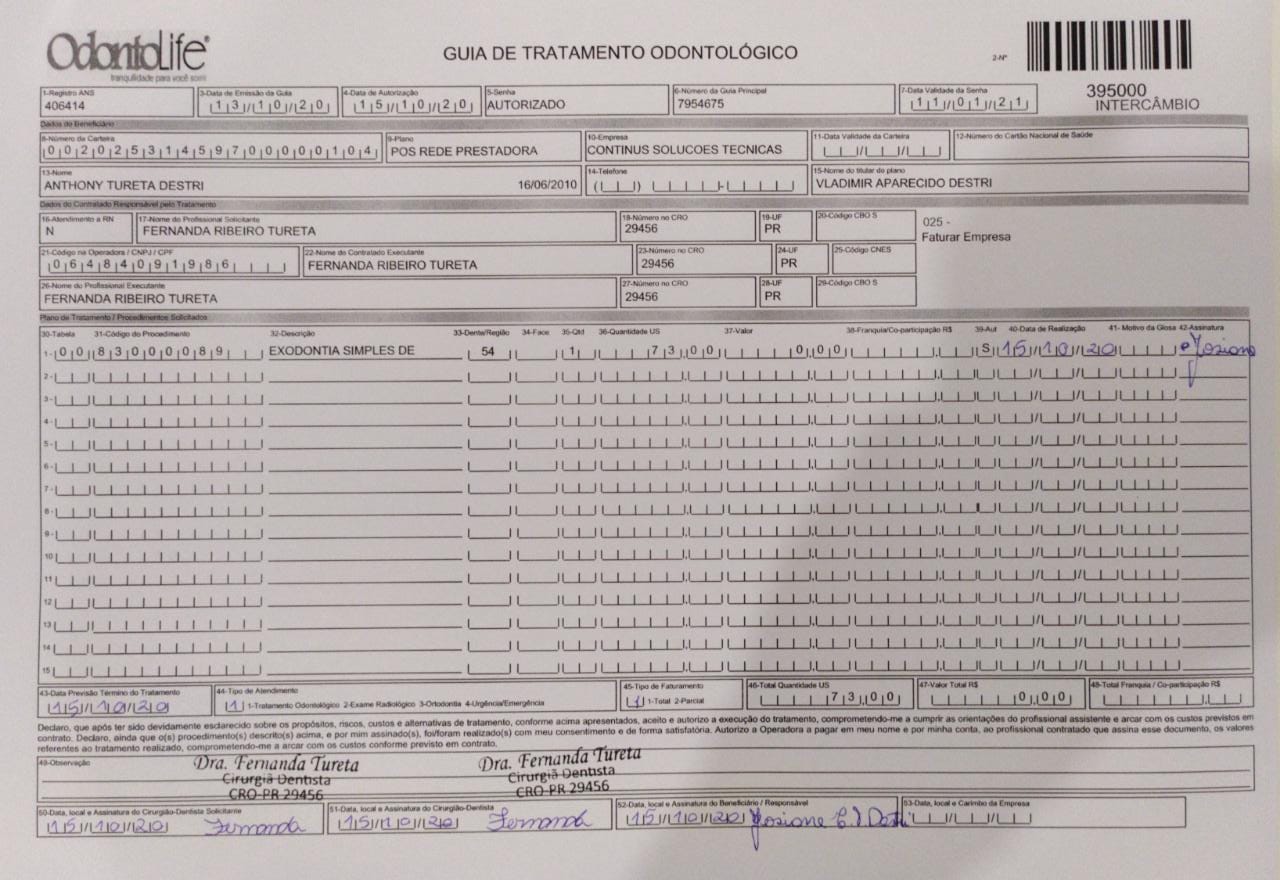 OdontoLife®
tranquilidade para você sorrir
GUIA DE TRATAMENTO ODONTOLÓGICO
2-Nº
395000
INTERCÂMBIO
1-Registro ANS
406414
3-Data de Emissão da Guia
13/10/20
4-Data de Autorização
15/10/20
5-Senha
AUTORIZADO
6-Número da Guia Principal
7954675
7-Data Validade da Senha
11/01/21
Dados do Beneficiário
8-Número da Carteira
00202531459700000104
9-Plano
POS REDE PRESTADORA
10-Empresa
CONTINUS SOLUCOES TECNICAS
11-Data Validade da Carteira
12-Número do Cartão Nacional de Saúde
13-Nome
ANTHONY TURETA DESTRI 16/06/2010
14-Telefone
15-Nome do titular do plano
VLADIMIR APARECIDO DESTRI
Dados do Contratado Responsável pelo Tratamento
16-Atendimento a RN
N
17-Nome do Profissional Solicitante
FERNANDA RIBEIRO TURETA
18-Número no CRO
29456
19-UF
PR
20-Código CBO S
025 -
Faturar Empresa
21-Código na Operadora / CNPJ / CPF
06484091986
22-Nome do Contratado Executante
FERNANDA RIBEIRO TURETA
23-Número no CRO
29456
24-UF
PR
25-Código CNES
26-Nome do Profissional Executante
FERNANDA RIBEIRO TURETA
27-Número no CRO
29456
28-UF
PR
29-Código CBO S
Plano de Tratamento / Procedimentos Solicitados
30-Tabela 31-Código do Procedimento 32-Descrição 33-Dente/Região 34-Face 35-Qtd 36-Quantidade US 37-Valor 38-Franquia/Co-participação R$ 39-Aut 40-Data de Realização 41- Motivo da Glosa 42-Assinatura
1- 00 83000089 EXODONTIA SIMPLES DE 54 1 73,00 0,00 S 15/10/20 Josiane
2-
3-
4-
5-
6-
7-
8-
9-
10
11
12
13
14
15
43-Data Previsão Término do Tratamento
15/10/20
44-Tipo de Atendimento
1 1-Tratamento Odontológico 2-Exame Radiológico 3-Ortodontia 4-Urgência/Emergência
45-Tipo de Faturamento
1 1-Total 2-Parcial
46-Total Quantidade US
73,00
47-Valor Total R$
0,00
48-Total Franquia / Co-participação R$
Declaro, que após ter sido devidamente esclarecido sobre os propósitos, riscos, custos e alternativas de tratamento, conforme acima apresentados, aceito e autorizo a execução do tratamento, comprometendo-me a cumprir as orientações do profissional assistente e arcar com os custos previstos em
contrato. Declaro, ainda que o(s) procedimento(s) descrito(s) acima, e por mim assinado(s), foi/foram realizado(s) com meu consentimento e de forma satisfatória. Autorizo a Operadora a pagar em meu nome e por minha conta, ao profissional contratado que assina esse documento, os valores
referentes ao tratamento realizado, comprometendo-me a arcar com os custos conforme previsto em contrato.
49-Observação
Dra. Fernanda Tureta
Cirurgiã Dentista
CRO-PR 29456
Dra. Fernanda Tureta
Cirurgiã Dentista
CRO-PR 29456
50-Data, local e Assinatura do Cirurgião-Dentista Solicitante
15/10/20 Fernanda
51-Data, local e Assinatura do Cirurgião-Dentista
15/10/20 Fernanda
52-Data, local e Assinatura do Beneficiário / Responsável
15/10/20 Josiane
53-Data, local e Carimbo da Empresa